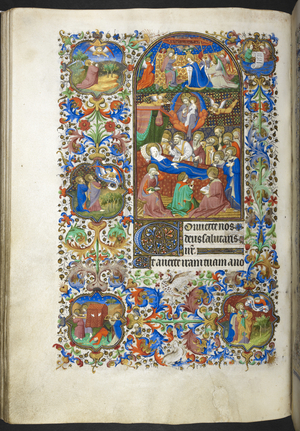 Conuerte nos
deus salutaris
nr̄.
Et auerte iram tuam a no